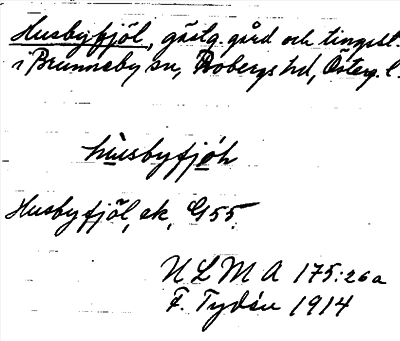 Husbyfjöl, gästg. gård och tingsst.
i Brunneby sn, Bobergs hd, Österg. l.
husbyfjöh
Husbyfjöl, ek, G55.
N L M A 175:26a
F. Tydén 1914